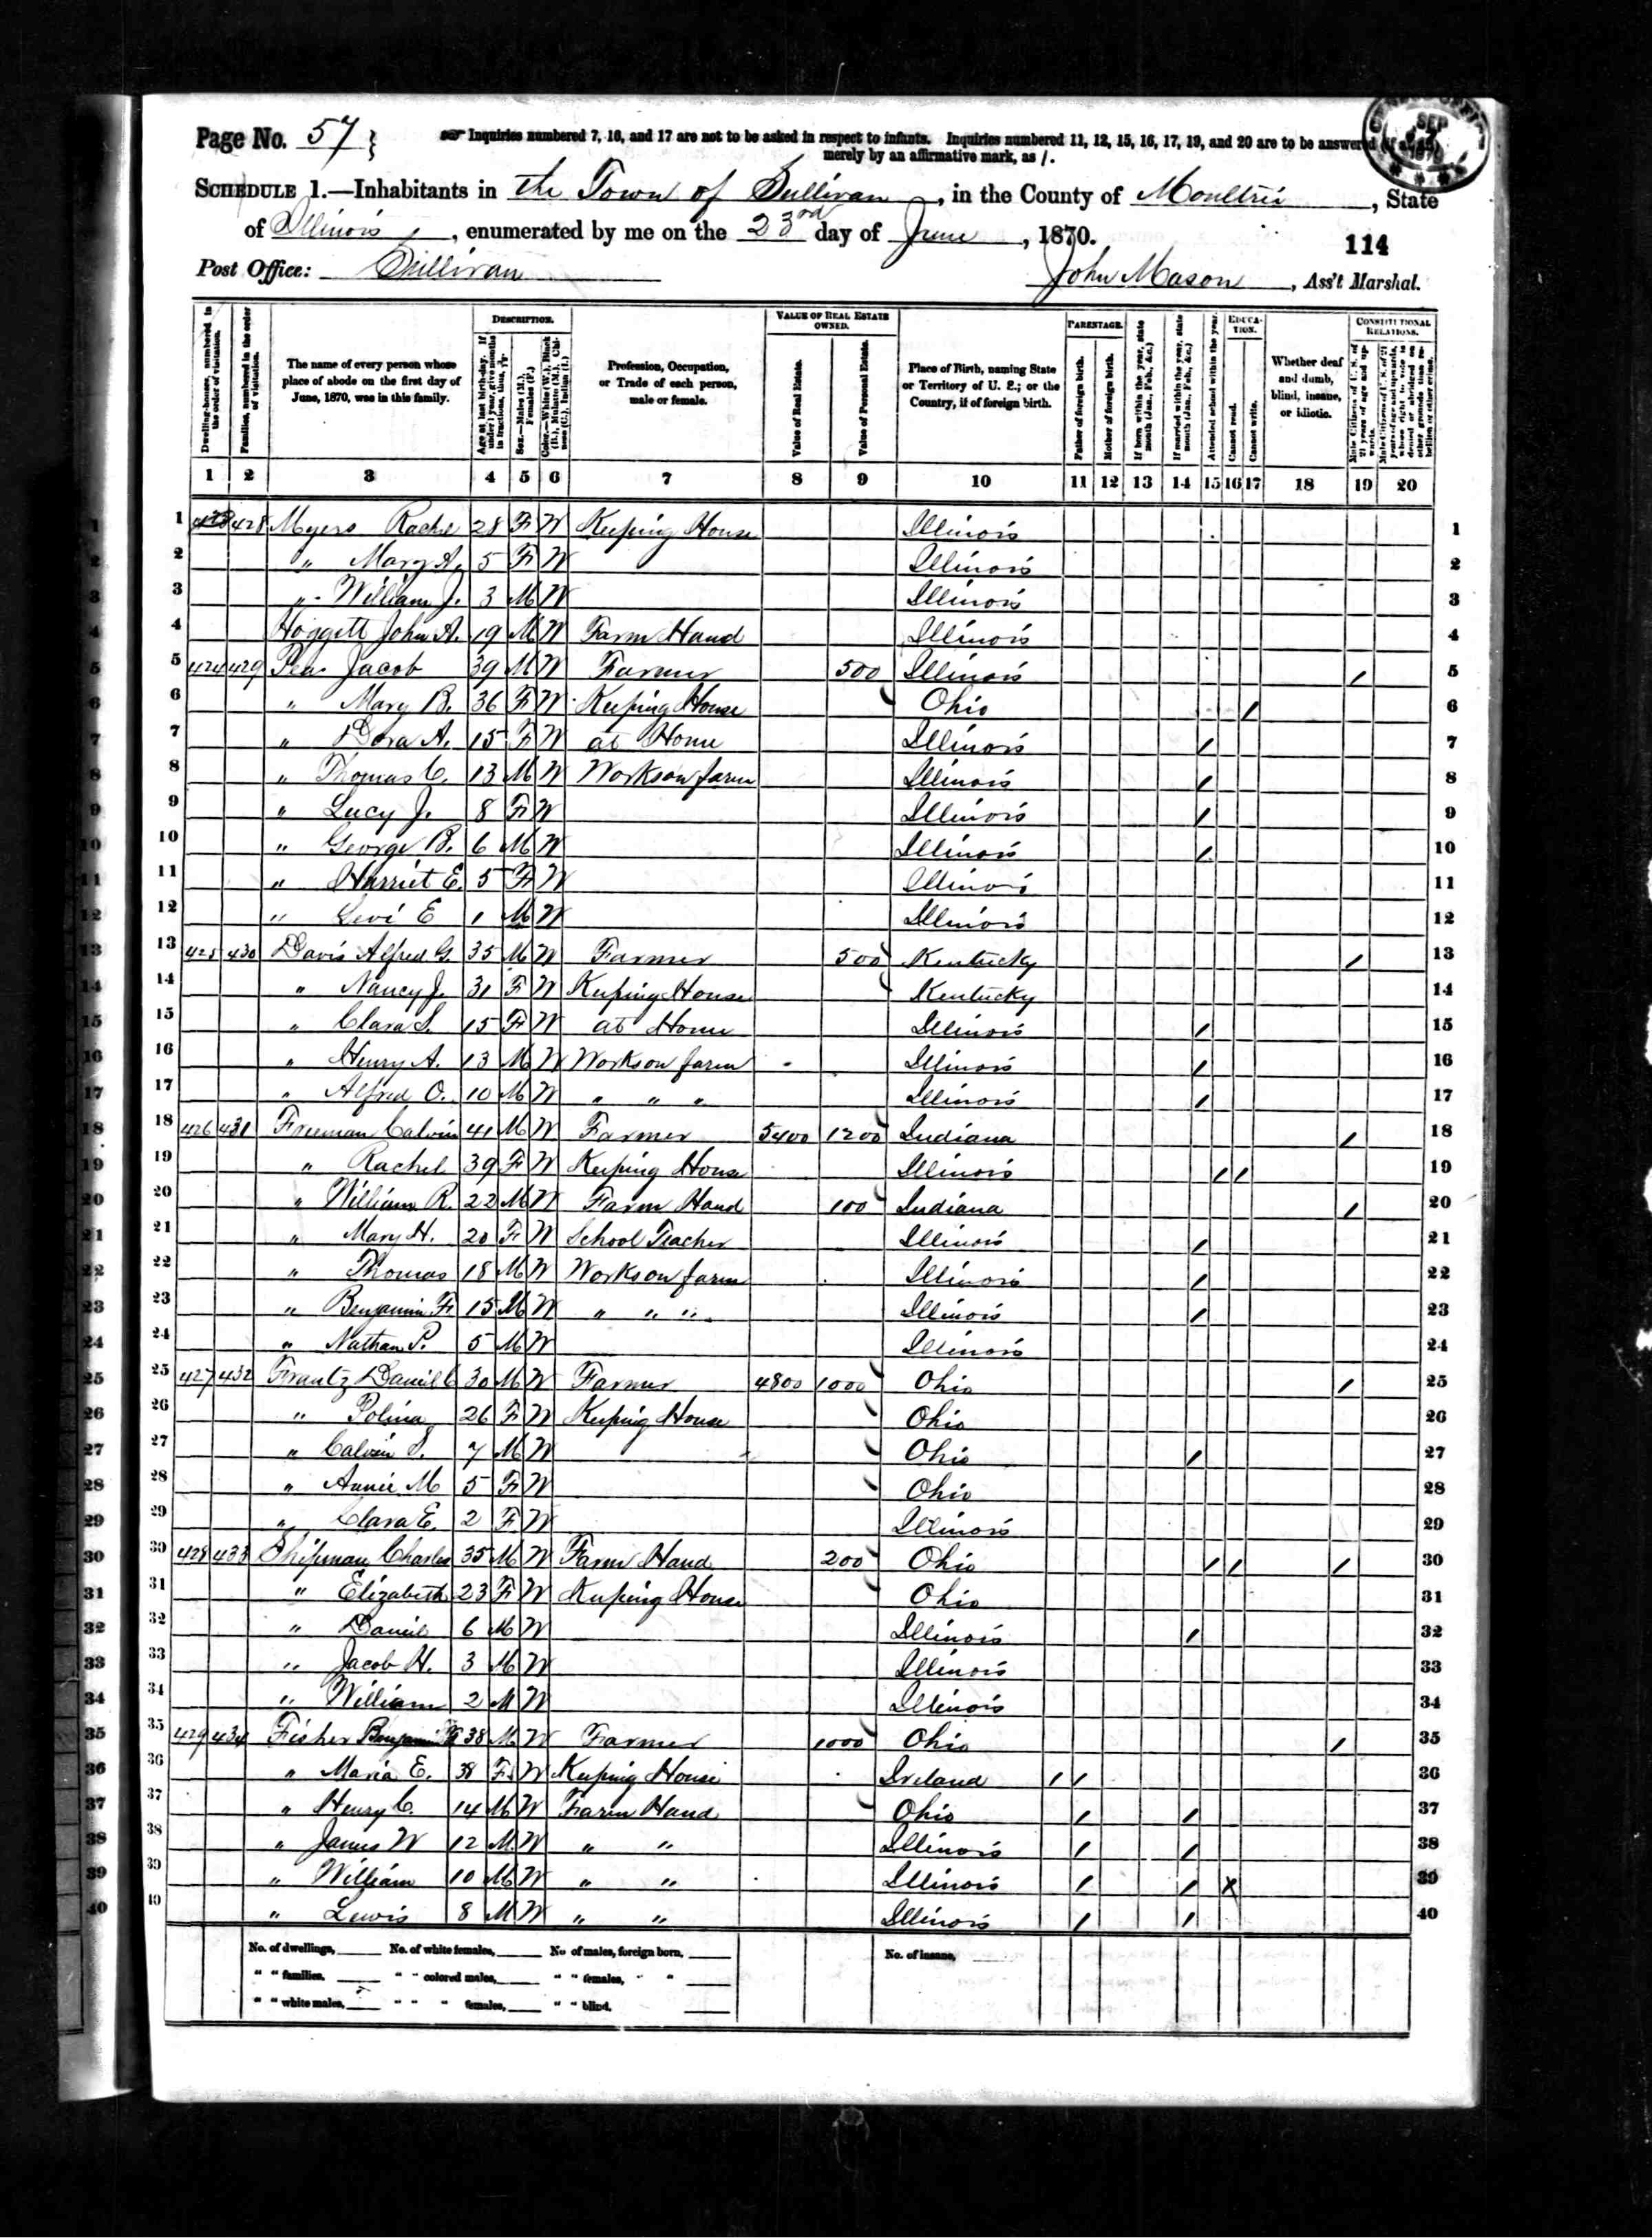 Page No. 57
Inquiries numbered 7, 16, and 17 are not to be asked in respect to infants. Inquiries numbered 11, 12, 15, 16, 17, 19, and 20 are to be answered
merely by an affirmative mark, as /.
SCHEDULE 1.—Inhabitants in the Town of Sullivan, in the County of Moultrie, State
of Illinois, enumerated by me on the 23rd day of June, 1870.
114
Post Office: Sullivan
John Mason, Ass't Marshal.
DESCRIPTION. VALUE OF REAL ESTATE OWNED. PARENTAGE. EDUCATION. CONSTITUTIONAL RELATIONS.
Dwelling-houses, numbered in the order of visitation.
Families, numbered in the order of visitation.
The name of every person whose place of abode on the first day of June, 1870, was in this family.
Age at last birth-day. If under 1 year, give months in fractions, thus,
Sex.—Males (M.), Females (F.)
Color.—White (W.), Black (B.), Mulatto (M.), Chinese (C.), Indian (I.)
Profession, Occupation, or Trade of each person, male or female.
Value of Real Estate.
Value of Personal Estate.
Place of Birth, naming State or Territory of U. S.; or the Country, if of foreign birth.
Father of foreign birth.
Mother of foreign birth.
If born within the year, state month (Jan., Feb., &c.)
If married within the year, state month (Jan., Feb., &c.)
Attended school within the year.
Cannot read.
Cannot write.
Whether deaf and dumb, blind, insane, or idiotic.
Male Citizens of U. S. of 21 years of age and upwards.
1 2 3 4 5 6 7 8 9 10 11 12 13 14 15 16 17 18 19 20
1 423 428 Myers Rachel 28 F W Keeping House Illinois 1
2 " Mary A. 5 F W Illinois 2
3 " William J. 3 M W Illinois 3
4 Hoggett John A. 19 M W Farm Hand Illinois 4
5 424 429 Pea Jacob 39 M W Farmer 500 Illinois / 5
6 " Mary B. 36 F W Keeping House Ohio / 6
7 " Dora A. 15 F W at Home Illinois / 7
8 " Thomas C. 13 M W Works on farm Illinois / 8
9 " Lucy J. 8 F W Illinois / 9
10 " George B. 6 M W Illinois / 10
11 " Harriet E. 5 F W Illinois 11
12 " Levi E 1 M W Illinois 12
13 425 430 Davis Alfred G. 35 M W Farmer 500 Kentucky / 13
14 " Nancy J. 31 F W Keeping House Kentucky 14
15 " Clara S. 15 F W at Home Illinois / 15
16 " Henry A. 13 M W Works on farm Illinois / 16
17 " Alfred O. 10 M W " " " Illinois / 17
18 426 431 Freeman Calvin 41 M W Farmer 5400 1200 Indiana / 18
19 " Rachel 39 F W Keeping House Illinois / / 19
20 " William R. 22 M W Farm Hand 100 Indiana / 20
21 " Mary H. 20 F W School Teacher Illinois / 21
22 " Thomas 18 M W Works on farm Illinois / 22
23 " Benjamin F. 15 M W " " " Illinois / 23
24 " Nathan P. 5 M W Illinois 24
25 427 432 Frantz Daniel C 30 M W Farmer 4800 1000 Ohio / 25
26 " Polina 26 F W Keeping House Ohio 26
27 " Calvin S. 7 M W Ohio / 27
28 " Annie M 5 F W Ohio 28
29 " Clara E. 2 F W Illinois 29
30 428 433 Shipman Charles 35 M W Farm Hand 200 Ohio / / / 30
31 " Elizabeth 23 F W Keeping House Ohio 31
32 " Daniel 6 M W Illinois / 32
33 " Jacob H. 3 M W Illinois 33
34 " William 2 M W Illinois 34
35 429 434 Fisher Benjamin 38 M W Farmer 1000 Ohio / 35
36 " Maria E. 38 F W Keeping House Ireland / / 36
37 " Henry C. 14 M W Farm Hand Ohio / / 37
38 " James W 12 M W " " Illinois / / 38
39 " William 10 M W " " Illinois / / X 39
40 " Lewis 8 M W " " Illinois / / 40
No. of dwellings, No. of white females, No of males, foreign born, No. of insane,
" " families, " " colored males, " " females, " "
" " white males, " " " females, " " blind,